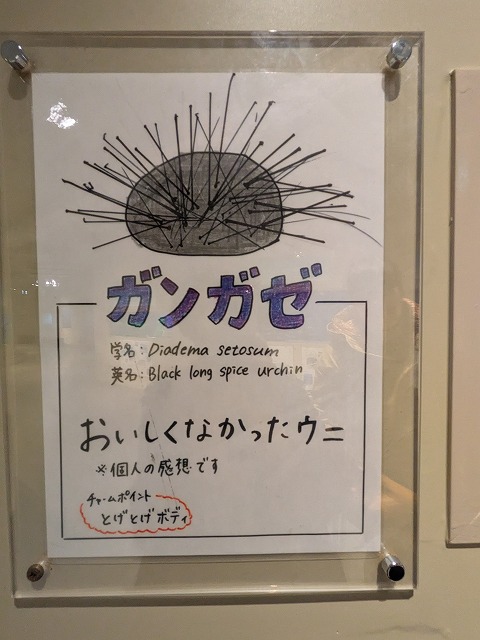 ガンガゼ
学名:Diadema setosum
英名:Black long spice urchin
おいしくなかったウニ
※個人の感想です
チャームポイント
とげとげボディ